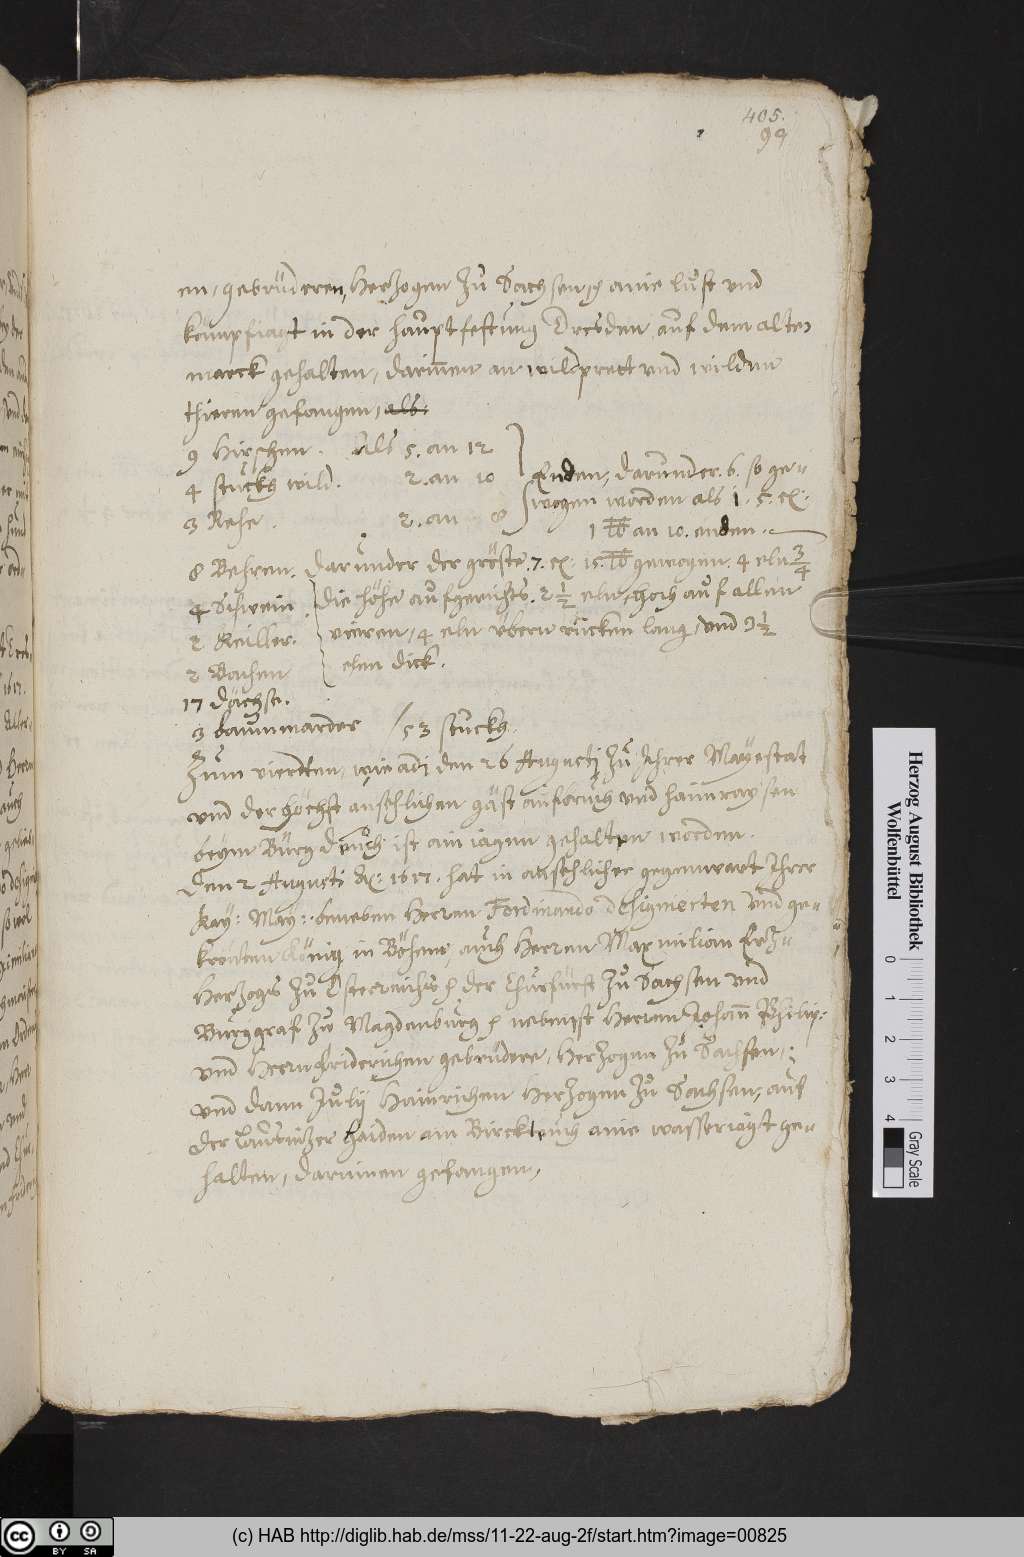 405.
99
en, gebrüderen, Herzogen zu Sachsen, ain lust und
kampfiagt in der hauptfestung Dresden auf dem alten
marck gehalten, darinnen an wildprett und wilden
thieren gefangen, als:
9 Hirschen. Als 5. an 12
4 stuckh wild. 2. an 10 Enden, darunder. 6. so ge-
3 Rehe. 2. an 8 wogen worden als 1. 5. C:
1 ℔ an 10. enden.
8 Behren. darunder der gröste. 7. C: 15. ℔ gewogen: 4 eln 3/4
4 Schwein. die höhe aufgerichts. 2 1/2 eln, hoch auf allen
2 Keiller. vieren, 4 eln ybern rücken lang, und 3 1/2
2 Bachen elen dick.
17 dächse.
3 baummarder / 53 stuckh.
Zum vierdten, wie adi den 26 Augusti zu Ihrer Mayestat
und der höchst ansehlichen gäst und haimraysen
beym Burg ist ain iagen gehalten worden.
Den 2 Augusti A: 1617. hat in ansehlicher gegenwart Ihrer
Kay: May: beneben Herren Ferdinando designierten und ge-
krönten König in Böhem, auch Herren Maximilian Erz-
Herzogs zu Österreichs der Churfürst zu Sachsen und
Burggraf zu Magdenburg nebenst Herren Johann Philip:
und Herrn Friderichen gebrüdere, Herzogen zu Sachsen,
und dann Julij Hainrichen Herzogen zu Sachsen, auf
der haiden am ainen wasseriagt ge-
halten, darinnen gefangen,
Herzog August Bibliothek
Wolfenbüttel
0 1 2 3 4
Gray Scale
cc BY SA
(c) HAB http://diglib.hab.de/mss/11-22-aug-2f/start.htm?image=00825